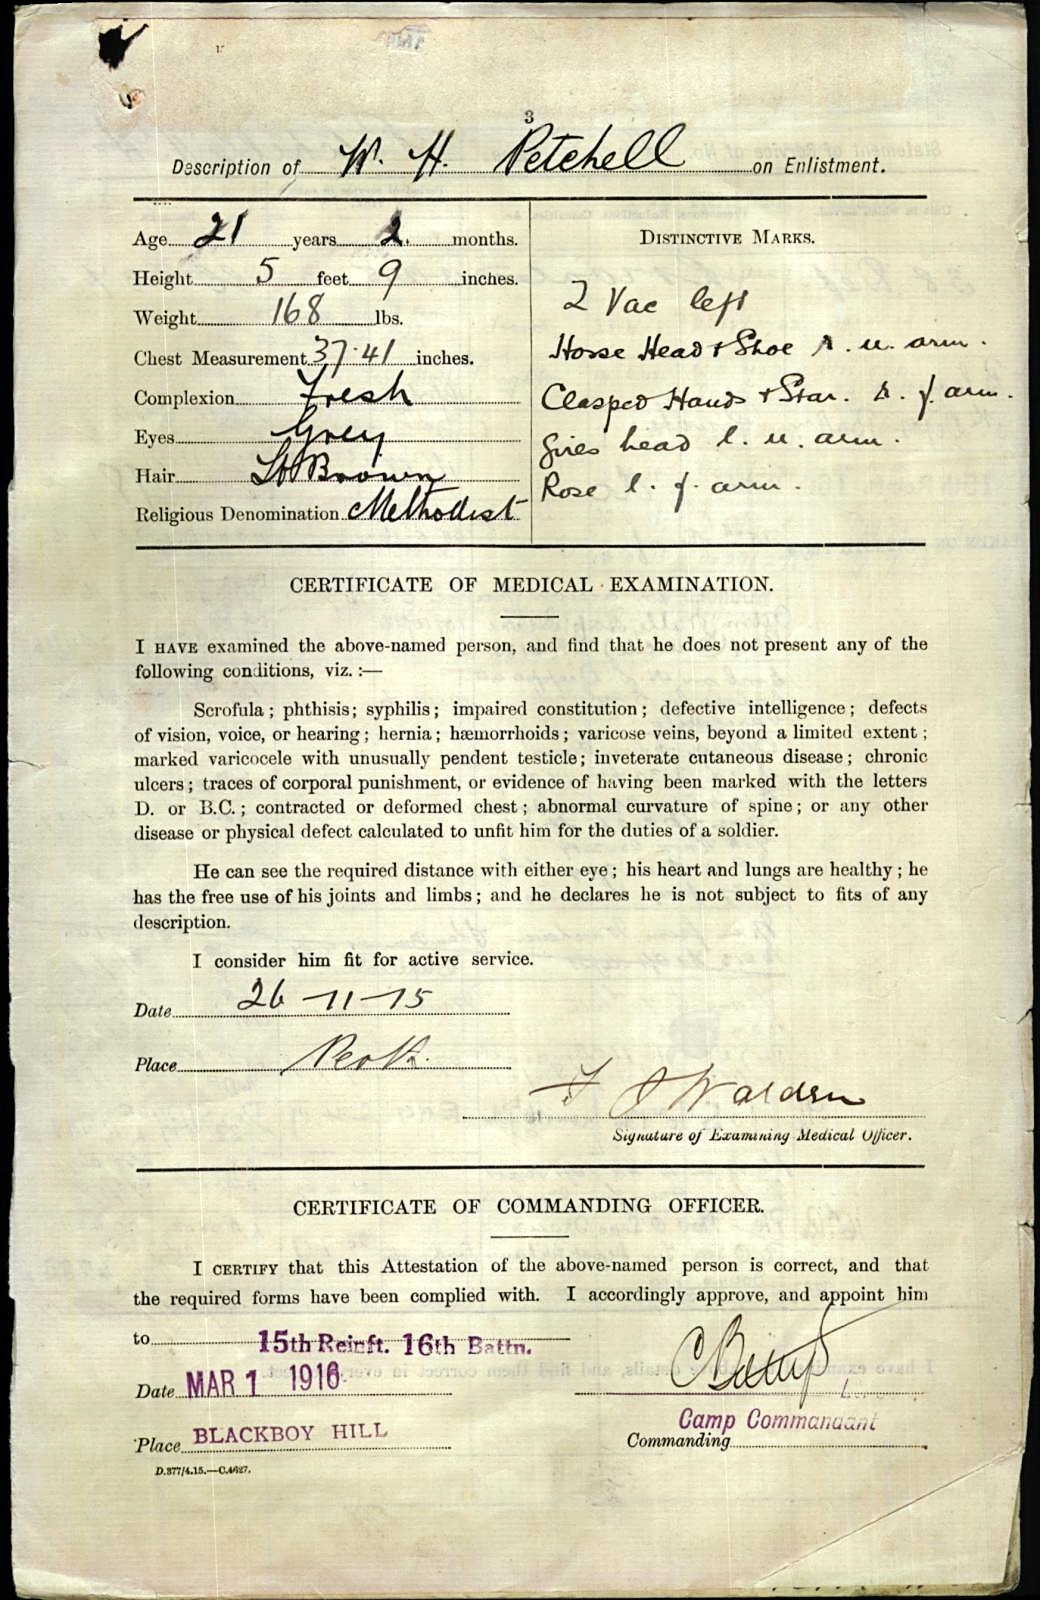 3
Description of W. H. Petchell on Enlistment.
Age 21 years 2. months.
Height 5 feet 9 inches.
Weight 168 lbs.
Chest Measurement 37-41 inches.
Complexion Fresh
Eyes Grey
Hair Lt Brown
Religious Denomination Methodist
DISTINCTIVE MARKS.
2 Vac left
Horse Head + Shoe r. u. arm.
Clasped Hands + Star. r. f. arm.
Girls head l. u. arm.
Rose l. f. arm.
CERTIFICATE OF MEDICAL EXAMINATION.
I HAVE examined the above-named person, and find that he does not present any of the
following conditions, viz. :—
Scrofula ; phthisis ; syphilis ; impaired constitution ; defective intelligence ; defects
of vision, voice, or hearing ; hernia ; hæmorrhoids ; varicose veins, beyond a limited extent ;
marked varicocele with unusually pendent testicle ; inveterate cutaneous disease ; chronic
ulcers ; traces of corporal punishment, or evidence of having been marked with the letters
D. or B.C. ; contracted or deformed chest ; abnormal curvature of spine ; or any other
disease or physical defect calculated to unfit him for the duties of a soldier.
He can see the required distance with either eye ; his heart and lungs are healthy ; he
has the free use of his joints and limbs ; and he declares he is not subject to fits of any
description.
I consider him fit for active service.
Date 26-11-15
Place Perth.
F J Walden
Signature of Examining Medical Officer.
CERTIFICATE OF COMMANDING OFFICER.
I CERTIFY that this Attestation of the above-named person is correct, and that
the required forms have been complied with. I accordingly approve, and appoint him
to 15th Reinft. 16th Battn.
Date MAR 1 1916
Place BLACKBOY HILL
Camp Commandant
Commanding
D.377/4.15.—C.4627.